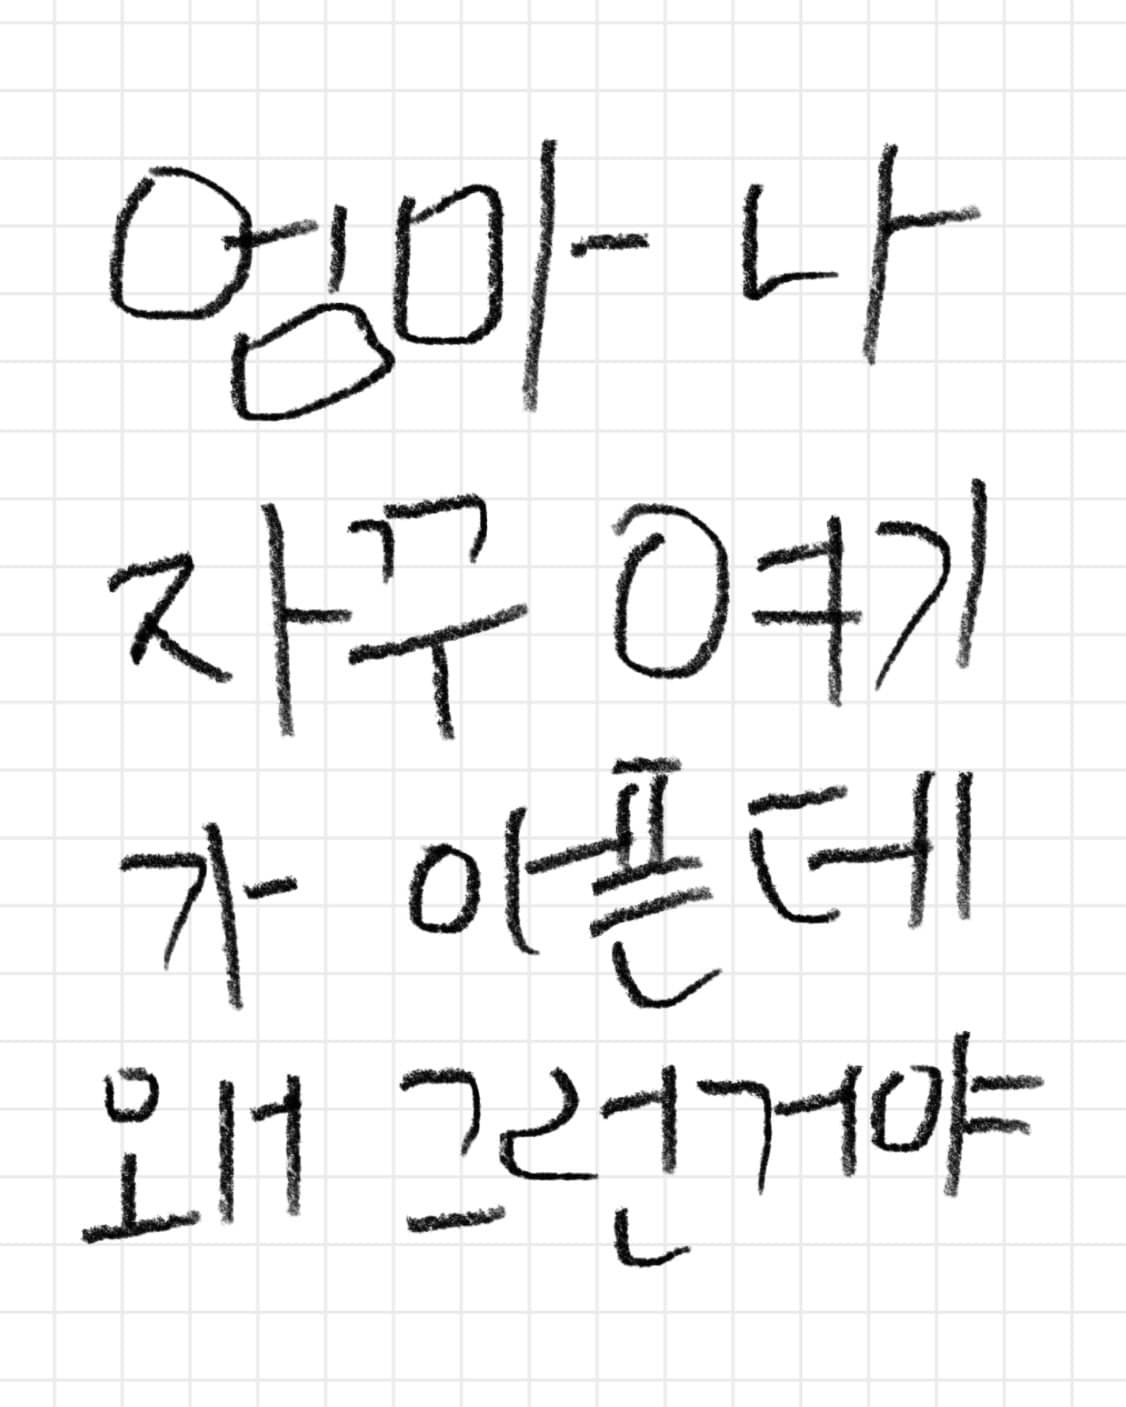 엄마 나
자꾸 여기
가 아픈데
왜 그런거야